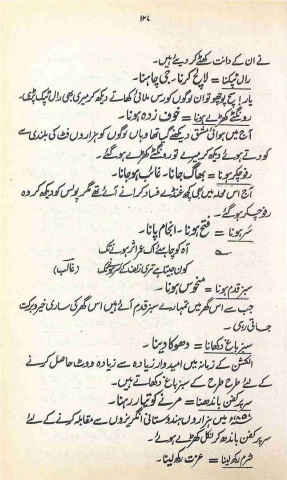 ۱۴۷
نے ان کے دانت کھٹے کر دیے ہیں۔
رال ٹپکنا = لالچ کرنا۔ جی چاہنا۔
یار! سچ پوچھو تو ان لوگوں کو رس ملائی کھاتے دیکھ کر میری بھی رال ٹپک پڑی۔
رونگٹے کھڑے ہونا = خوف زدہ ہونا۔
آج میں ہوائی مشق دیکھنے گیا تھا وہاں لوگوں کو ہزاروں فٹ کی بلندی سے
کودتے ہوئے دیکھ کر میرے تو رونگٹے کھڑے ہو گئے۔
رفو چکر ہونا = بھاگ جانا۔ غائب ہو جانا۔
آج اس محلہ میں بھی کچھ غنڈے فساد کرانے آئے تھے مگر پولس کو دیکھ کر وہ
رفو چکر ہو گئے۔
سر ہونا = فتح ہونا۔ انجام پانا۔
آہ کو چاہیے اک عمر اثر ہونے تک
کون جیتا ہے تری زلف کے سر ہونے تک (غالب)
سبز قدم ہونا = منحوس ہونا۔
جب سے اس گھر میں تمہارے سبز قدم آئے ہیں اس گھر کی ساری خیر و برکت
جاتی رہی۔
سبز باغ دکھانا = دھوکا دینا۔
الکشن کے زمانہ میں امیدوار زیادہ سے زیادہ ووٹ حاصل کرنے
کے لئے طرح طرح کے سبز باغ دکھاتے ہیں۔
سر پر کفن باندھنا = مرنے کو تیار رہنا۔
۱۸۵۷ء میں ہزاروں ہندوستانی انگریزوں سے مقابلہ کرنے کے لئے
سر پر کفن باندھ کر نکل کھڑے ہوئے۔
شرم رکھ لینا = عزت رکھ لینا۔